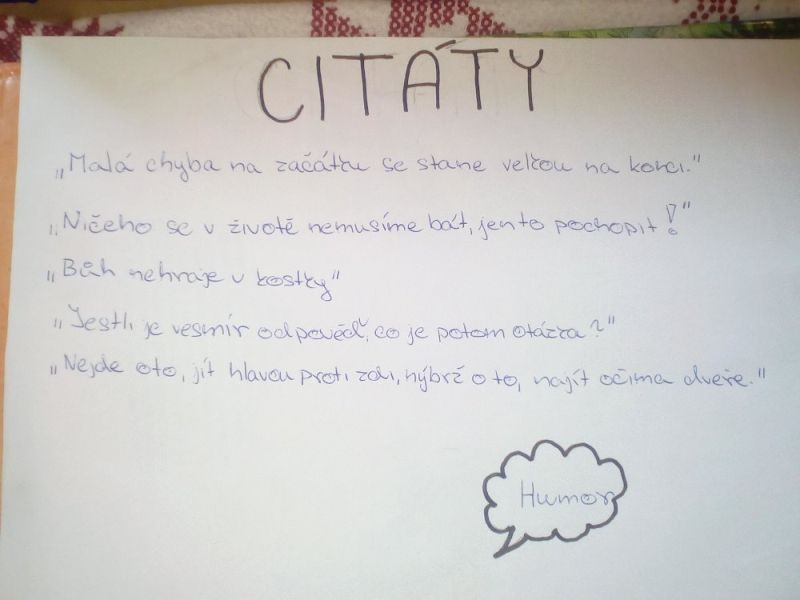 CITÁTY
„Malá chyba na začátku se stane velkou na konci."
„Ničeho se v životě nemusíme bát, jen to pochopit!"
„Bůh nehraje v kostky"
„Jestli je vesmír odpověď, co je potom otázka?"
„Nejde oto, jít hlavou proti zdi, nýbrž o to, najít očima dveře."
Humor